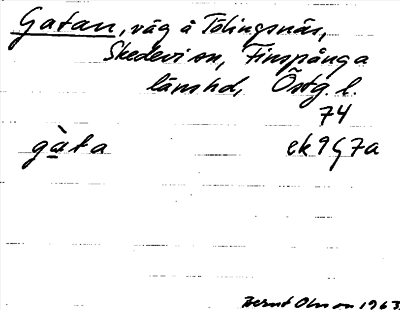 Gatan, väg å Tölingsnäs,
Skedevi sn, Finspånga
länshd, Östg. l.
74
gàta ek 9G7a
Bernt Olsson 1963